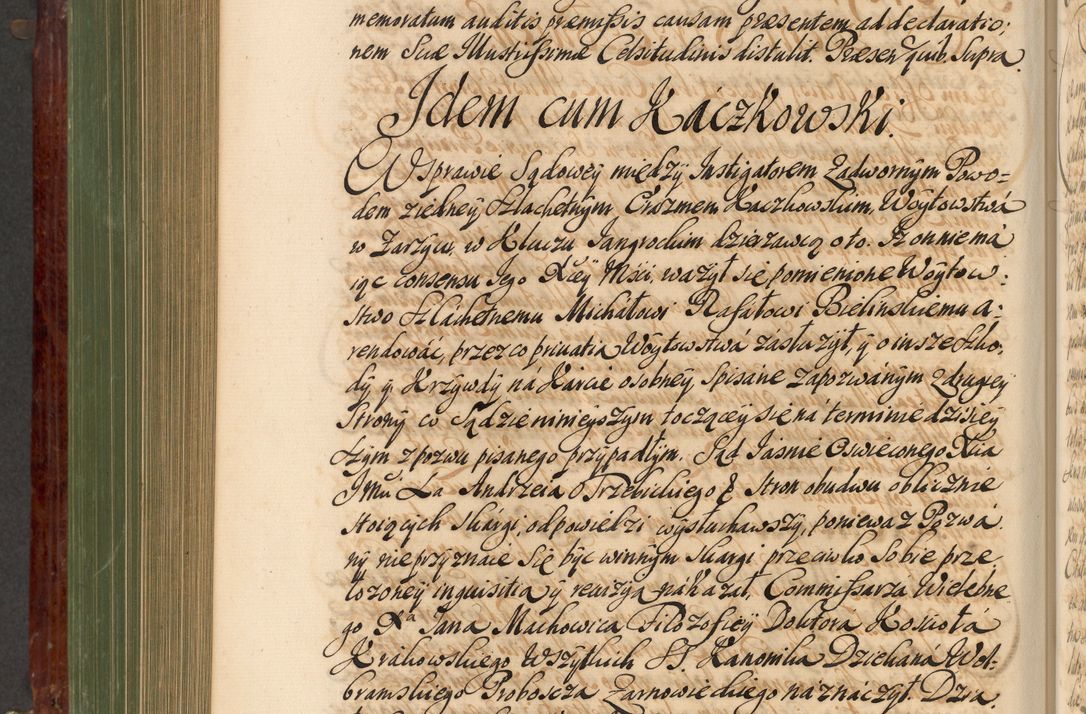 memoratum auditis præmissis causam præsentem ad declaratio:
nem Suæ Illustrissimæ Celsitudinis distulit. Præsen quib. supra.
Idem cum Kaczkowski.
W Sprawie Sądowey między Instigatorem Zadwornym Powo-
dem z iedney, Szlachetnym Erazmem Kaczkowskim, Woytowstwá
w Zarzycu, w Kluczu Jangrockim dzierzawcą oto. Iż on nie má
iąc consensu Jego Xcey Mści, ważył się pomienione Woytow:
stwo Szlachetnemu Michałowi Rafałowi Bielinskiemu a:
rendować, przez co privatią Woytowstwá zásłużył, y o insze szko:
dy y Krzywdy ná Karcie osobney spisáne zapozwánym z drugiey
strony co Sądzie ninieyszym toczącey się ná terminie dzisiey
szym z pozwu pisanego przypadłym. Sąd Jásnie Oswieconego Xcia
JMci Xa Andrzeia Trzebickiego &c Stron obudwu oblicznie
stoiących skargi, odpowiedzi wysłuchawszy, poniewaz Pozwá
ny nieprzyznaie się byc winnym skargi przeciwko sobie prze
łozoney inquisitią y rewizyą nákazał, Commissarza Wielebne
go Xa Jana Machowica Filozofiey Doktora Kosciołá
Krákowskiego Wszytkich SS. Kanonika Dziekaná Wol-
bramskiego Proboszcza Zarnowieckiego náznáczył. Dzia